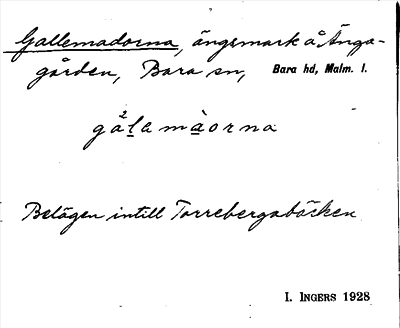 Gallemadorna, ängsmark å Änga-
gården, Bara sn, Bara hd, Malm. l.
gá²lamàorna
Belägen intill Torrebergabäcken
I. INGERS 1928